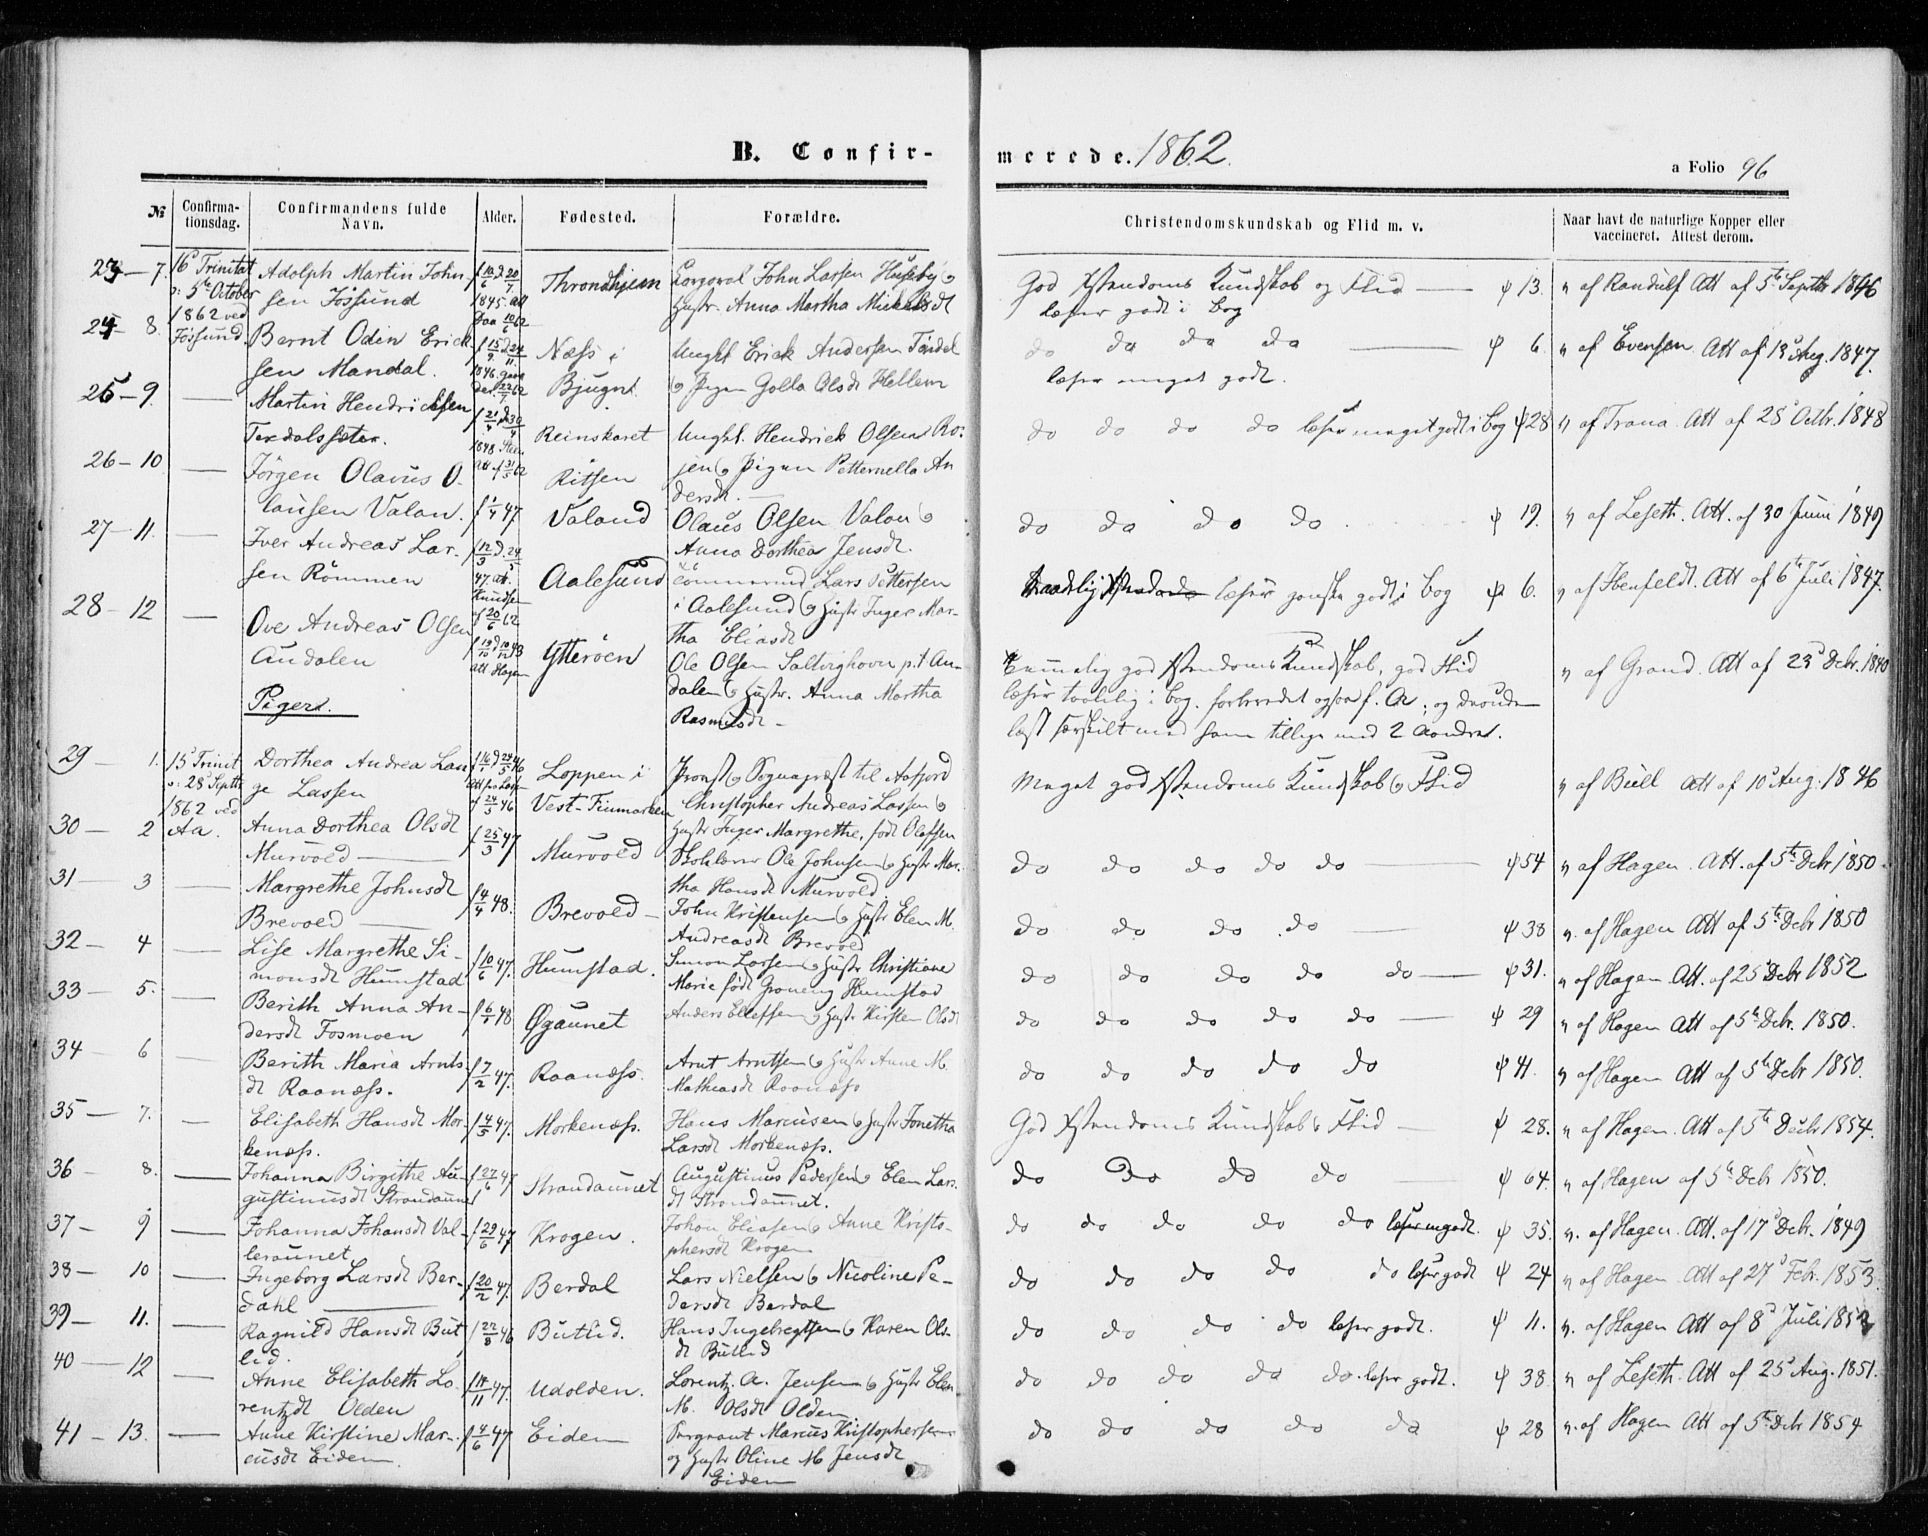 B. Confir-
merede. 1862.
a Folio 96
№
Confirma-
tionsdag.
Confirmandens fulde
Navn.
Alder.
Fødested.
Forældre.
Christendomskundskab og Flid m. v.
Naar havt de naturlige Kopper eller
vaccineret. Attest derom.
23 — 7. 16 Trinitat Adolph Martin John-
5te October sen Jössund Throndhjem John Larsen Huseby
1862 ved 1845 Hustr. Anna Martha
Jössund God Xstendoms Kundskab og Flid — ψ 13. " af Randulf Att af 5te Septbr 1846
læser godt i Bog
24 — 8. Bernt Odin Erick-
sen Mandal. Næss i Ungkl Erick Andersen
Bjugn Pigen Golla Olsdt Hellem
do do do do — ψ 6. " af Evensen Att af 13 Aug. 1847.
læser meget godt.
25 — 9. — Martin Hendricksen
Reinskaret Ungkl. Hendrick Olsen
Ritsen Pigen Petternella An
dersdt.
do do do do læser meget godt i Bog ψ 28 " af Trana Att af 25 Octbr. 1848
26 — 10 — Jörgen Olaus O-
lausen Valan. f 1/4 47 Valand Olaus Olsen Valan
Anna Dorthea Jensdt.
do do do do ψ 19. " af Leseth. Att. af 30 Juni 1849
27 — 11. — Iver Andreas Lar-
sen Römmen Aalesund Lars Pettersen
i Aalesund Hustr Inger Mar-
tha Eliasdt
læser ganske godt i Bog ψ 6. " af Att af 6te Juli 1847.
28 — 12 — Ove Andreas Olsen
Audalen Ytteröen Ole Olsen p.t Au-
dalen Hustr. Anna Martha
Rasmusdt —
Temmelig god Xstendoms Kundskab, god Flid " af Grand Att af 23 Debr. 1840
læser i Bog. forberedet
læst særskilt med ham tillige med 2 Andre.
Piger.
29 — 1. 15 Trinit Dorthea Andrea Lan
28 Septbr ge Lassen Loppen i Provst Sognepræst til Aafjord
1862 ved Vest-Finmarken Christopher Andreas Lassen
Aa. Hustr Inger Margrethe, født Olafsen
Meget god Xstendoms Kundskab Flid " af Bull Att af 10 Aug. 1846
30 — 2 Anna Dorthea Olsdt
Murvold — f 25/3 47 Murvold Skolelærer Ole Johnsen Hustr Mar-
tha Hansdt Murvold
do do do do do — ψ 54 " af Hagen Att. af 5te Debr 1850
31 3 — Margrethe Johnsdt
Brevold — f 4/4 48. Brevold — John Kristensen Hustr Elen M.
Andreasdt Brevold
do do do do — ψ 38 ". af Hagen Att af 5te Debr 1850
32 — 4 — Lise Margrethe Si-
monsdt Humstad f 10/6 47. Humstad. Simon Larsen Hustr Christiane
Marie født Groneng Humstad
do do do do do — ψ 31. " af Hagen Att. af 25 Debr 1852
33 — 5. — Berith Anna An-
dersdt Fosmoen 48 Øgaunet Anders Ellefsen Hustr Kirsten Olsdt
do do do do do — ψ 29 " af Hagen Att af 5te Debr. 1850.
34 — 6 — Berith Maria Arnts-
dt Raanæss. f 7/2 47. Raanæss. Arnt Arntsen Hustr Anne M.
Mathiasdt Raanæss
do do do do do ψ 41. " af Hagen Att af 5te Debr 1850.
35 — 7. — Elisabeth Hansdt Mor-
kenæss. f 4/5 47. Morkenæss. Hans Marcusen Hustr Jonetha
Larsdt Morkenæss.
God Xstendoms Kundskab Flid — ψ 28. " af Hagen Att af 5te Debr 1854.
36 — 8. — Johanna Birgithe Au-
gustinusdt Strandaunet f 27/6 47 Strandaunet Augustinus Pedersen Elen Lars-
dt Strandaunet.
do do do do ψ 64. " af Hagen af 5te Debr 1850.
37 — 9 — Johanna Johansdt Val-
leraunet f 29/6 47 Krogen. Johan Eliasen Anne Kristo-
phersdt Krogen
do do do do do læser m godt. ψ 35. ". af Hagen. Att. af 17 Debr. 1849
38 — 10 — Ingeborg Larsdt Ber-
dahl — f 20/2 47. Berdal Lars Nielsen Nicoline Pe-
dersdt Berdal
do do do do do læser godt ψ 24 " af Hagen Att af 27 Febr. 1853.
39 — 11. — Ragnild Hansdt But
lid. f 22/8 46 Butlid. Hans Ingebregtsen Karen Ols-
dt Butlid
do do do do læser godt. ψ 11. ". af Hagen Att af 8 Juli 1852
40 — 12 — Anne Elisabeth Lo-
rentzdt Olden 47. Udolden. Lorentz A. Jensen Hustr Elen
M. Olsdt Olden
do do do do do. læser godt. ψ 38. " af Leseth Att af 25 Aug. 1851.
41 — 13. — Anne Kirstine Mar-
cusdt Eiden. f 4/6 47 Eiden Marcus Kristophersen
og Hustr Oline M Jensdt
Eiden
do do do do do ψ 28 ". af Hagen Att af 5te Debr 1854